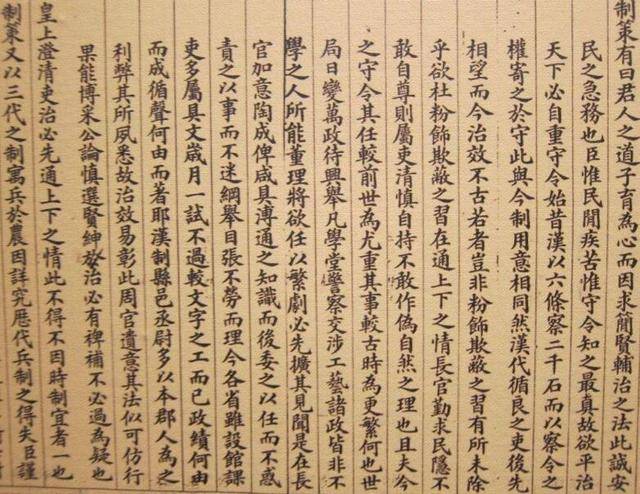 制策有曰君人之道子育為心而因求簡賢輔治之法此誠安
民之急務也臣惟民間疾苦惟守令知之最真故欲平治
天下必自重守令始昔漢以六條察二千石而以察令之
權寄之於守此與今制用意相同然漢代循良之吏後先
相望而今治效不古若者豈非粉飾欺蔽之習有所未除
乎欲杜粉飾欺蔽之習在通上下之情長官勤求民隱不
敢自尊則屬吏清慎自持不敢作偽自然之理也且夫今
之守令其任較前世為尤重其事較古時為更繁何也世
局日變萬政待興舉凡學堂警察交涉工藝諸政皆非不
學之人所能董理將欲任以繁劇必先擴其見聞是在長
官加意陶成俾成具溥通之知識而後委之以任而不惑
責之以事而不迷綱舉目張不勞而理今各省雖設館課
吏多屬具文歲月一試不過較文字之工而已政績何由
而成循聲何由而著耶漢制縣邑丞尉多以本郡人為之
利弊其所夙悉故治效易彰此周官遺意其法似可仿行
果能博采公論慎選賢紳於治必有裨補不必過為疑也
皇上澄清吏治必先通上下之情此不得不因時制宜者一也
制策又以三代之制寓兵於農因詳究歷代兵制之得失臣謹